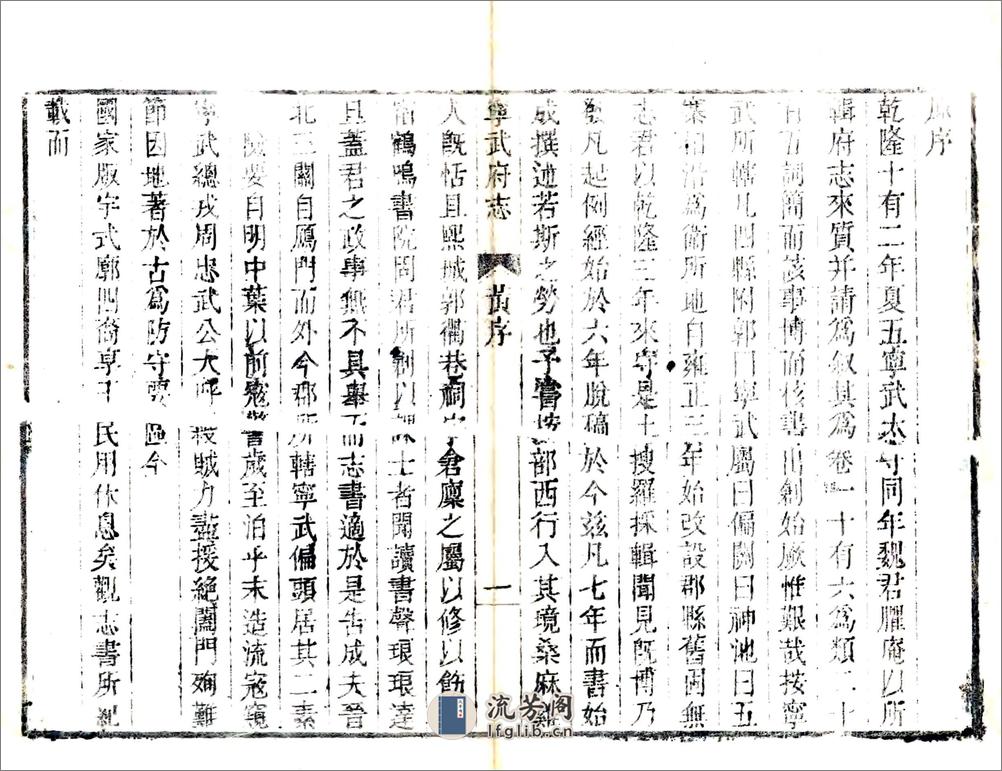 序
乾隆十有二年夏五寧武太守同年魏君臞庵以所
輯府志來質并請爲叙其爲卷一十有六爲類二十
有五詞簡而該事博而核書出創始厥惟艱哉按寧
武所轄凡四縣附郭曰寧武屬曰偏關曰神池曰五
寨相沿爲衛所地自雍正三年始改設郡縣舊固無
志君以乾隆三年來守是土搜羅採輯聞見既博乃
發凡起例經始於六年脫稿於今玆凡七年而書始
成撰述若斯之勞也予嘗按部西行入其境桑麻
寧武府志
黃序
一
人旣恬且熈城郭衢巷祠宇倉廩之屬以修以飭
宿鶴鳴書院周君所剏以課士者聞讀書聲琅琅達
且蓋君之政事無不具舉而志書適於是告成夫晉
北三關自鴈門而外今郡所轄寧武偏頭居其二素
險要自明中葉以前寇警歲至洎乎末造流寇竄
寧武總戎周忠武公大呼殺賊力盡援絕闔門殉難
節因地著於古爲防守要區今
國家版宇式廓四裔享王民用休息矣觀志書所紀
載而
流芳阁
lfglib.cn